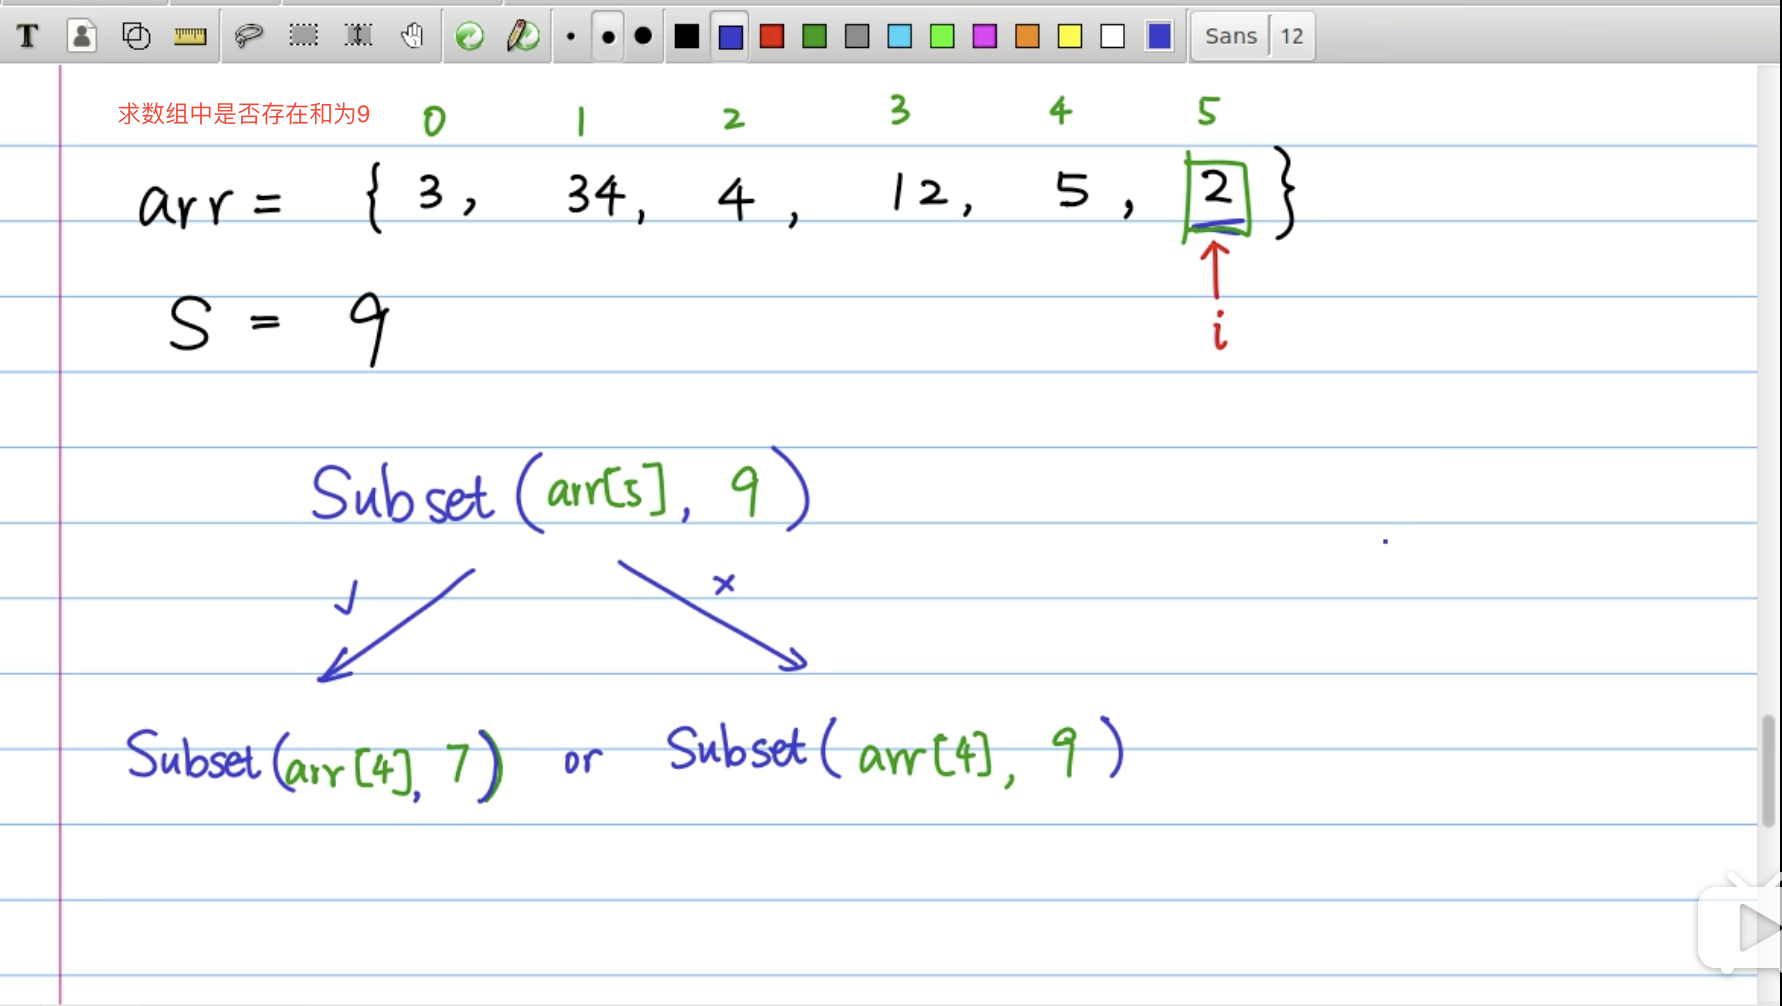 T Sans 12
求数组中是否存在和为9 0 1 2 3 4 5
arr = { 3, 34, 4, 12, 5, 2 }
i
S = 9
Subset(arr[5], 9)
✓ ×
Subset(arr[4], 7) or Subset(arr[4], 9)